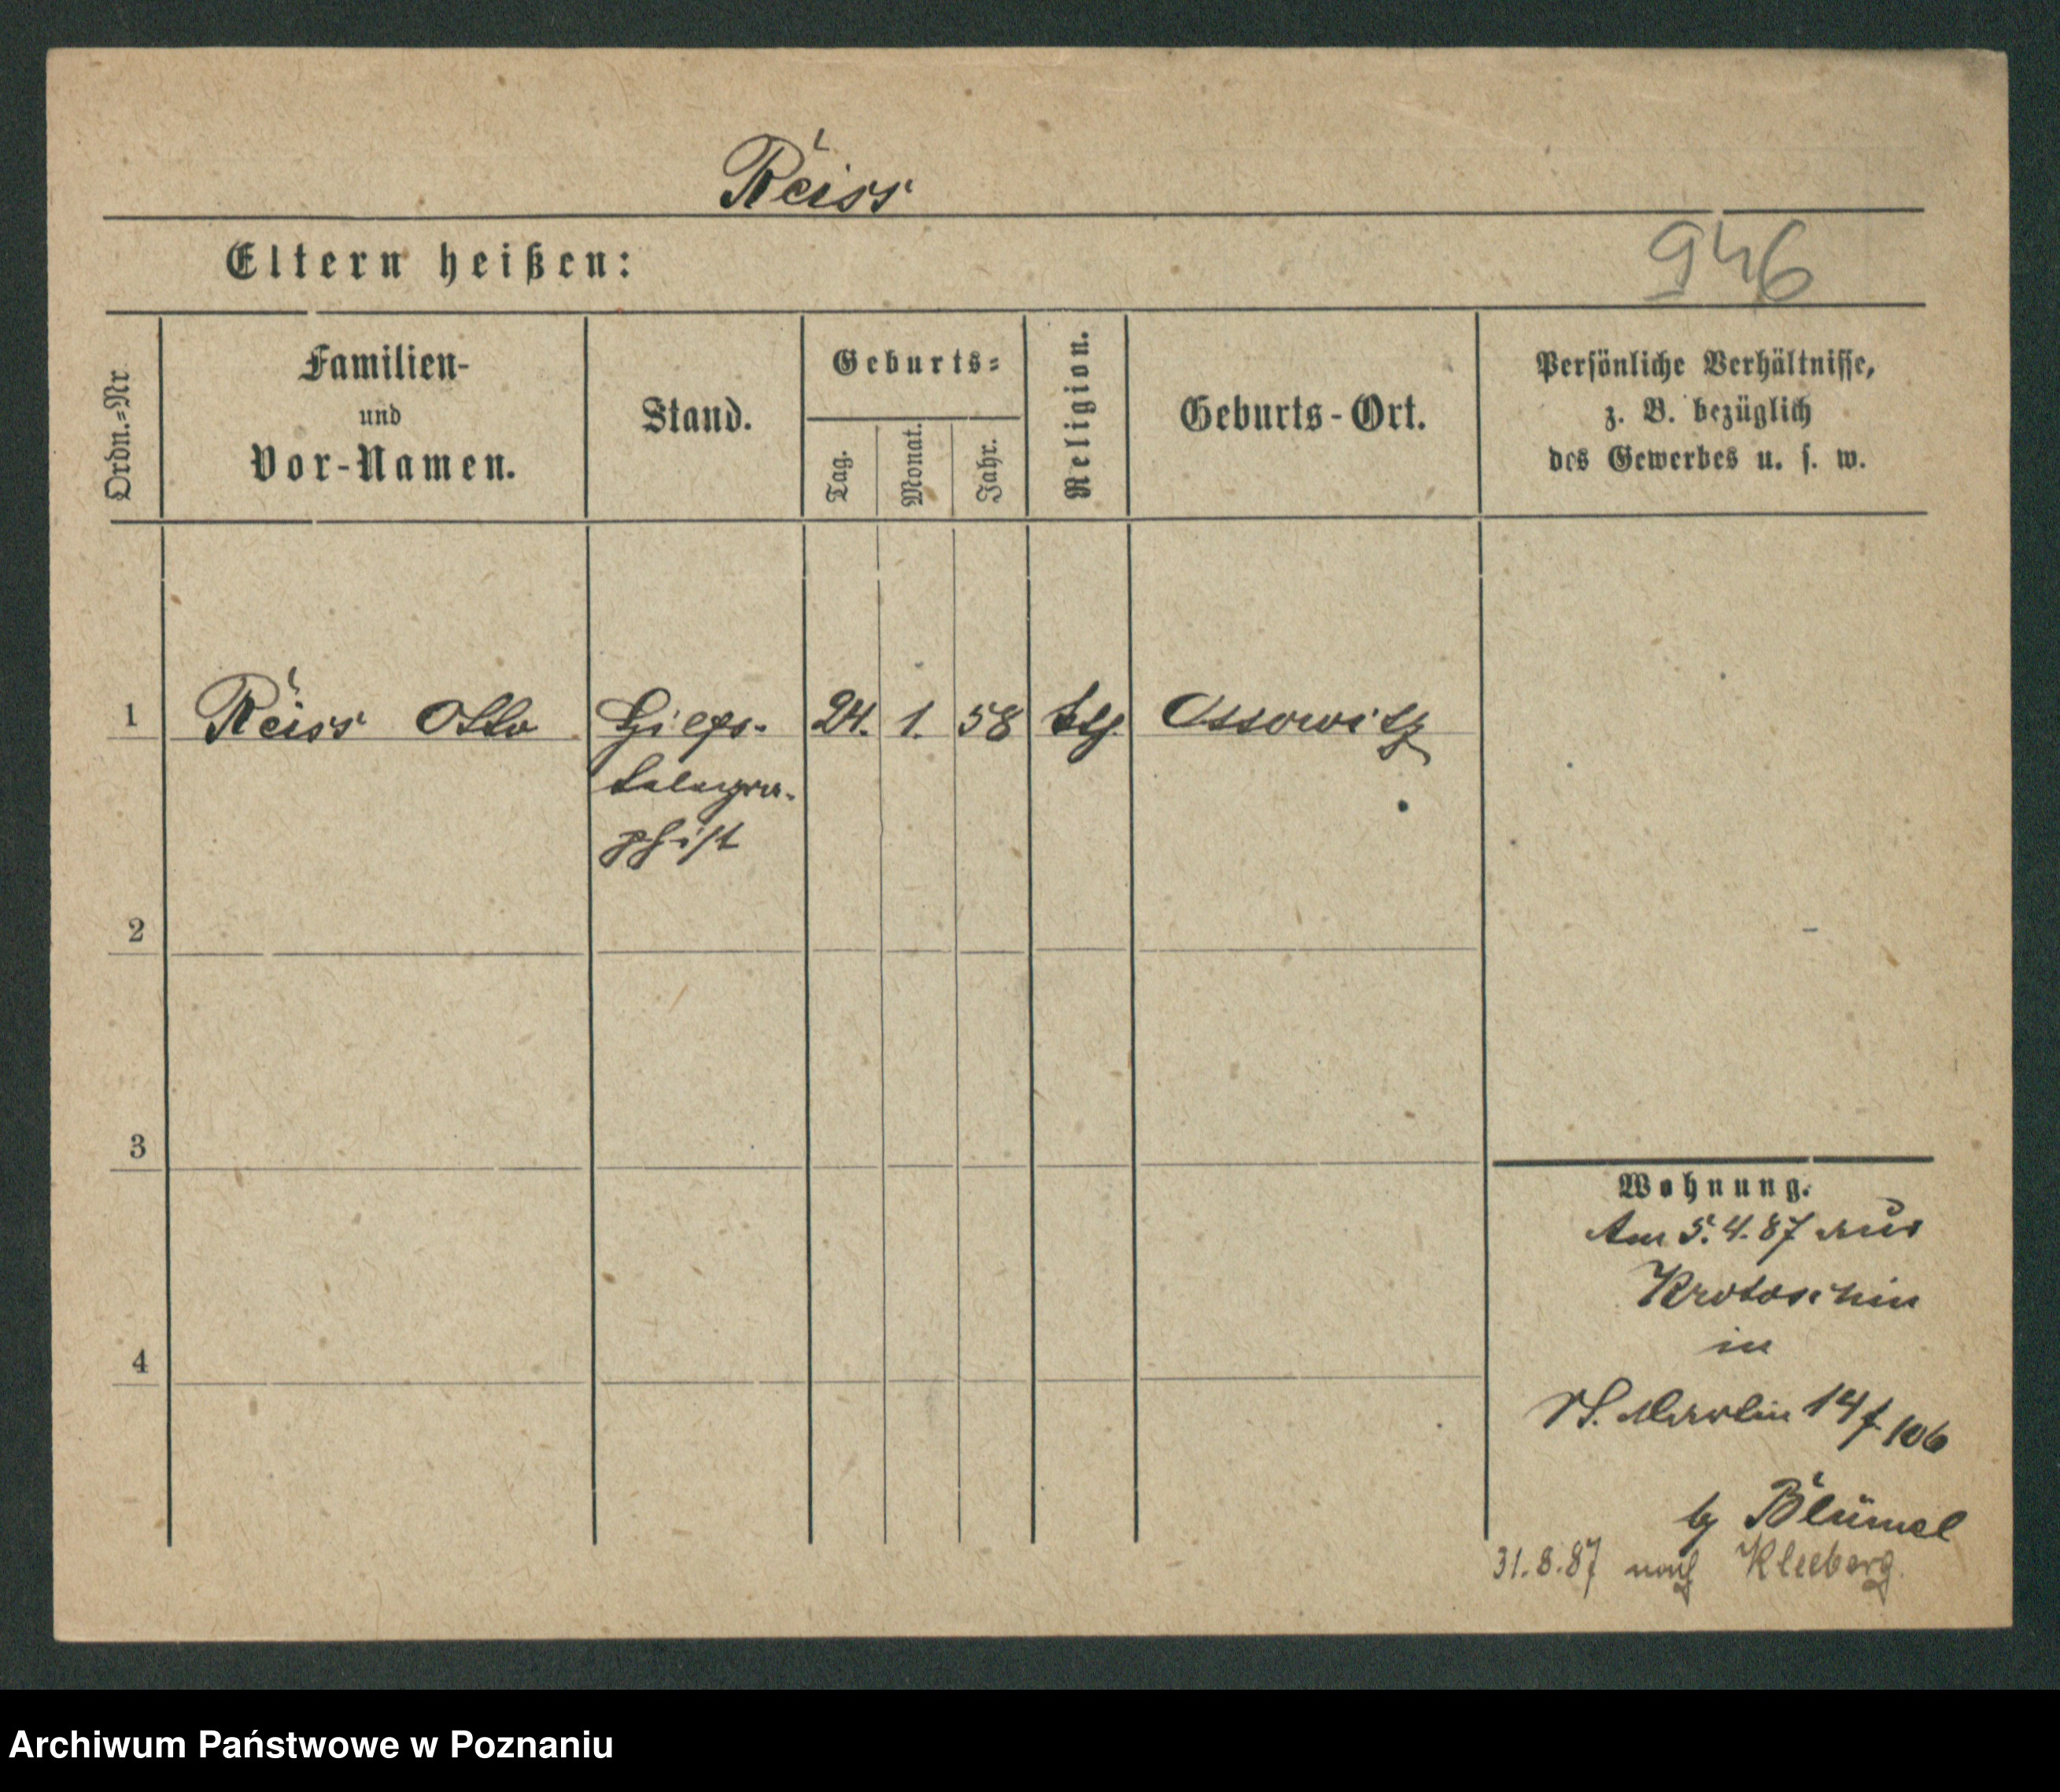 Reiss
Eltern heißen:
946
Ordn.=Nr
Familien-
und
Vor-Namen.
Stand.
Geburts=
Tag.
Monat.
Jahr.
Religion.
Geburts-Ort.
Persönliche Verhältnisse,
z. B. bezüglich
des Gewerbes u. s. w.
1
Reiss Otto
Hilfs-
telegra-
phist
24.
1.
58
kth.
Ossowitz
2
3
4
Wohnung.
Am 5.4.87 aus
Krotoschin
in
St. Martin 14/106
by Blümel
31.8.87 nach Kleeberg.
Archiwum Państwowe w Poznaniu